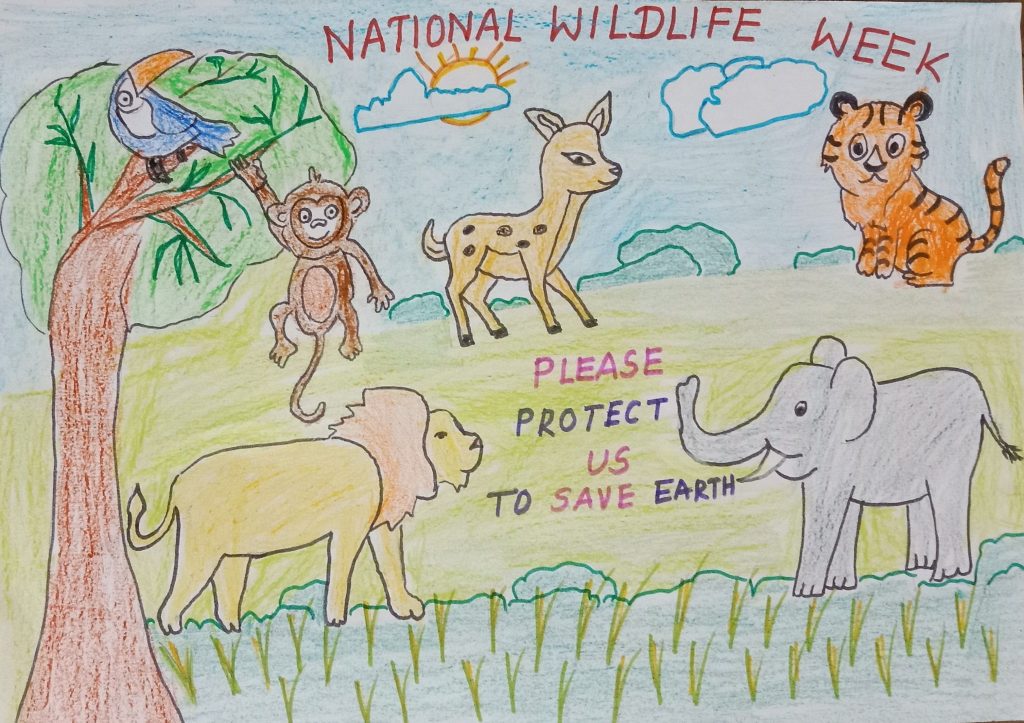 NATIONAL WILDLIFE WEEK
PLEASE
PROTECT
US
TO SAVE EARTH